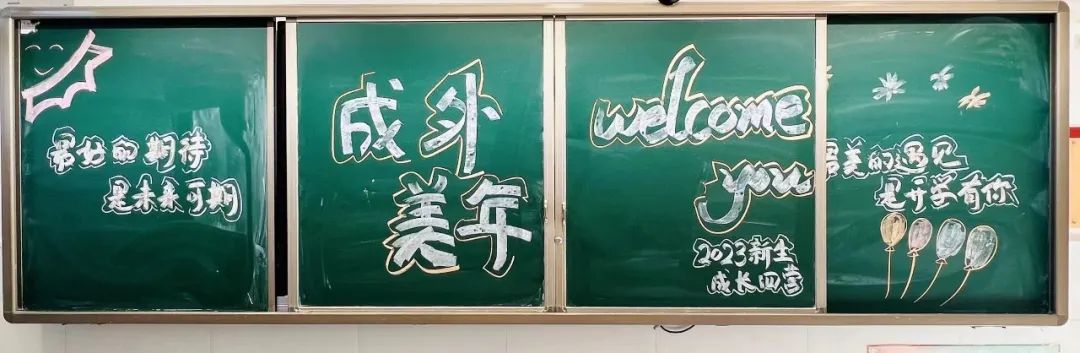 最好的期待
是未来可期
成外
美年
welcome
you
2023新生
成长四营
最美的遇见
是开学有你